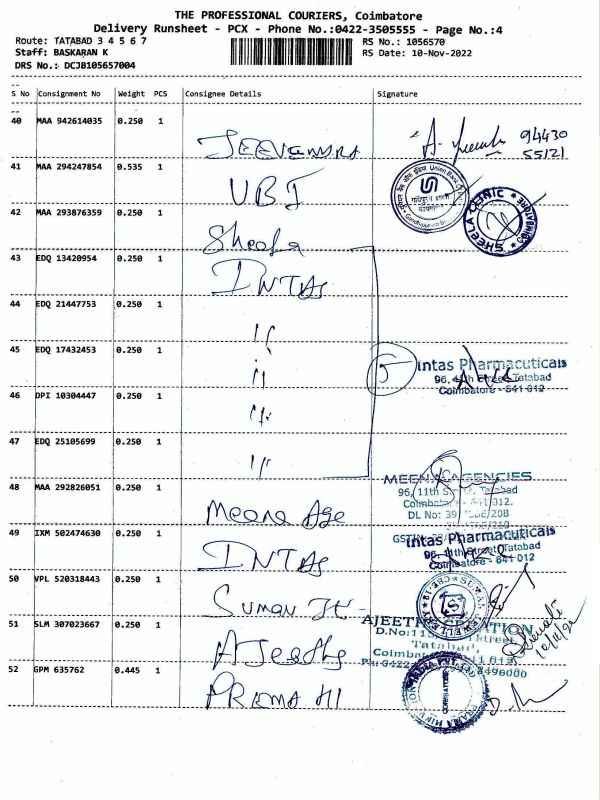 THE PROFESSIONAL COURIERS, Coimbatore
Delivery Runsheet - PCX - Phone No.:0422-3505555 - Page No.:4
Route: TATABAD 3 4 5 6 7
RS No.: 1056570
Staff: BASKARAN K
RS Date: 10-Nov-2022
DRS No.: DCJB105657004
S No Consignment No Weight PCS Consignee Details Signature
40 MAA 942614035 0.250 1 JEEVENDRA 94430
55121
41 MAA 294247854 0.535 1 UBI
Union Bank
42 MAA 293876359 0.250 1 Sheela
SHEELA CLINIC
COIMBATORE
43 EDQ 13420954 0.250 1 INTAS
44 EDQ 21447753 0.250 1 11
45 EDQ 17432453 0.250 1 11 5
intas Pharmacuticals
96, 11th Street, Tatabad
Coimbatore - 641 012
46 DPI 10304447 0.250 1 11
47 EDQ 25105699 0.250 1 11
MEENA AGENCIES
96, 11th Street, Tatabad
Coimbatore 012.
DL No: 39 /20B
48 MAA 292826051 0.250 1 Meena Age
49 IXM 502474630 0.250 1 INTAS
intas Pharmacuticals
96, 11th Street, Tatabad
Coimbatore - 641 012
50 VPL 520318443 0.250 1 Suman
51 SLM 307023667 0.250 1 AJeeths
AJEETH
D.No:11
Tatabad,
10/11/22
52 GPM 635762 0.445 1 PREMA HI